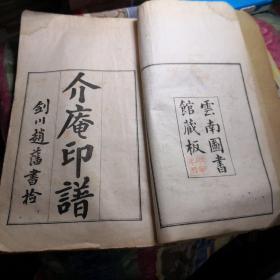 雲南圖書
館藏板
介庵印譜
劍川趙藩書捡